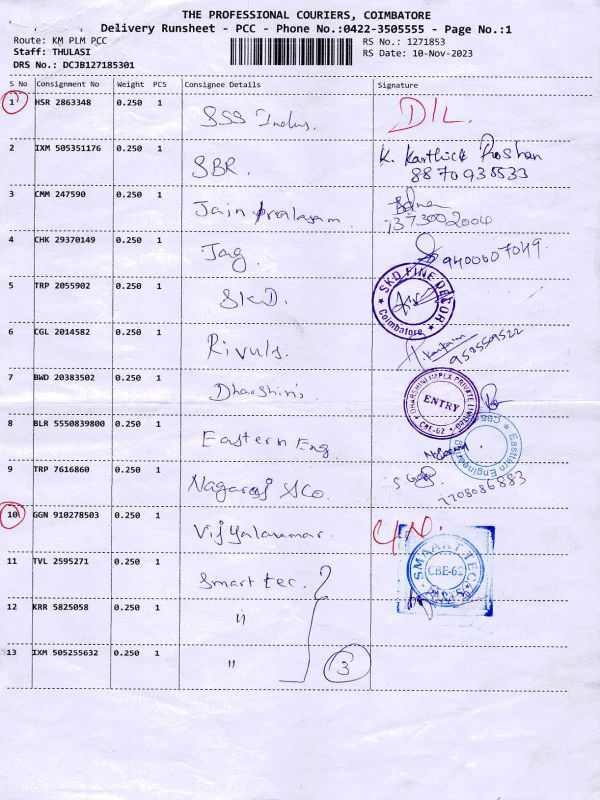 THE PROFESSIONAL COURIERS, COIMBATORE
Delivery Runsheet - PCC - Phone No.:0422-3505555 - Page No.:1
Route: KM PLM PCC
Staff: THULASI
DRS No.: DCJB127185301
RS No.: 1271853
RS Date: 10-Nov-2023
S No Consignment No Weight PCS Consignee Details Signature
1 HSR 2863348 0.250 1 SSS Indus. DIL.
2 IXM 505351176 0.250 1 SBR. K. Karthick Roshan
8870935533
3 CMM 247590 0.250 1 Jain
4 CHK 29370149 0.250 1 Jag 9400607049
5 TRP 2055902 0.250 1 SKD. SKD FINE DECOR Coimbatore
6 CGL 2014582 0.250 1 Rivuls.
7 BWD 20383502 0.250 1 Dharshini's DHARSHINI IMPEX PRIVATE LIMITED ENTRY CBE-62
8 BLR 5550839800 0.250 1 Eastern Eng. Eastern Engineering
9 TRP 7616860 0.250 1 Nagaraj &Co. 7708086883
10 GGN 910278503 0.250 1 Vijayakumar.
11 TVL 2595271 0.250 1 Smart tec. CBE-62
12 KRR 5825058 0.250 1 "
13 IXM 505255632 0.250 1 " 3